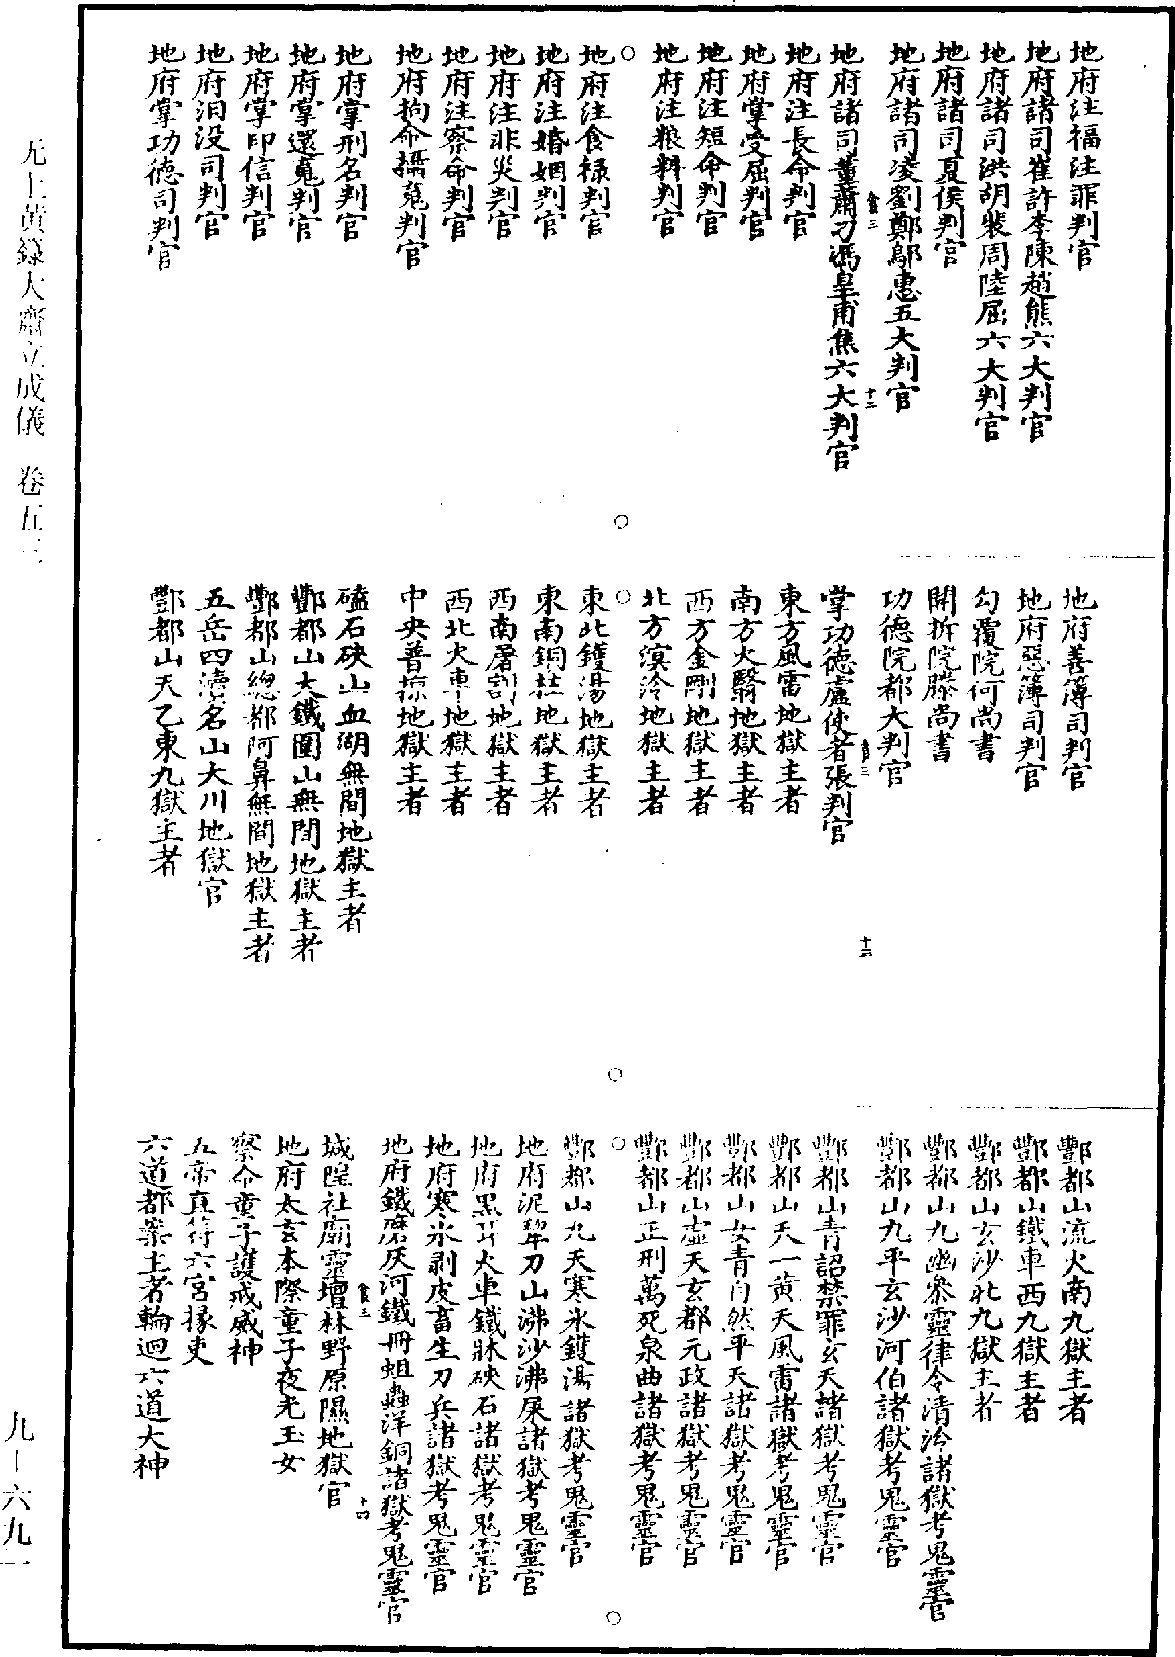 地府注福注罪判官
地府諸司崔許李陳趙熊六大判官
地府諸司洪胡裴周陸屈六大判官
地府諸司夏侯判官
地府諸司凌劉鄭鄔惠五大判官
地府諸司董蕭刁馮皇甫焦六大判官
地府注長命判官
地府掌受屈判官
地府注短命判官
地府注粮料判官
地府注食禄判官
地府注婚姻判官
地府注非災判官
地府注察命判官
地府拘命攝䰟判官
地府掌刑名判官
地府掌還䰟判官
地府掌印信判官
地府汨没司判官
地府掌功德司判官
地府善簿司判官
地府惡簿司判官
勾覆院何尚書
開拆院滕尚書
功德院都大判官
掌功德盧使者張判官
東方風雷地獄主者
南方火翳地獄主者
西方金剛地獄主者
北方溟泠地獄主者
東北鑊湯地獄主者
東南銅柱地獄主者
西南屠割地獄主者
西北火車地獄主者
中央普掠地獄主者
磕石硤山血湖無間地獄主者
酆都山大鐵圍山無間地獄主者
酆都山總都阿鼻無間地獄主者
五岳四瀆名山大川地獄官
酆都山天乙東九獄主者
酆都山流火南九獄主者
酆都山鐵車西九獄主者
酆都山玄沙北九獄主者
酆都山九幽泉靈律令清泠諸獄考鬼靈官
酆都山九平玄沙河伯諸獄考鬼靈官
酆都山青詔禁罪玄天諸獄考鬼靈官
酆都山天一黄天風雷諸獄考鬼靈官
酆都山女青自然平天諸獄考鬼靈官
酆都山虚天玄都元政諸獄考鬼靈官
酆都山正刑萬死泉曲諸獄考鬼靈官
酆都山九天寒氷鑊湯諸獄考鬼靈官
地府泥犂刀山沸沙沸屎諸獄考鬼靈官
地府黑耳火車鐵牀硤石諸獄考鬼靈官
地府寒氷剥皮畜生刀兵諸獄考鬼靈官
地府鐵磨灰河鐵冊蛆蟲洋銅諸獄考鬼靈官
城隍社廟靈壇林野原隰地獄官
地府太玄本際童子夜光玉女
察命童子護戒威神
五帝直符六宫掾吏
六道都案主者輪迴六道大神
无上黄籙大齋立成儀 卷五三
九—六九一